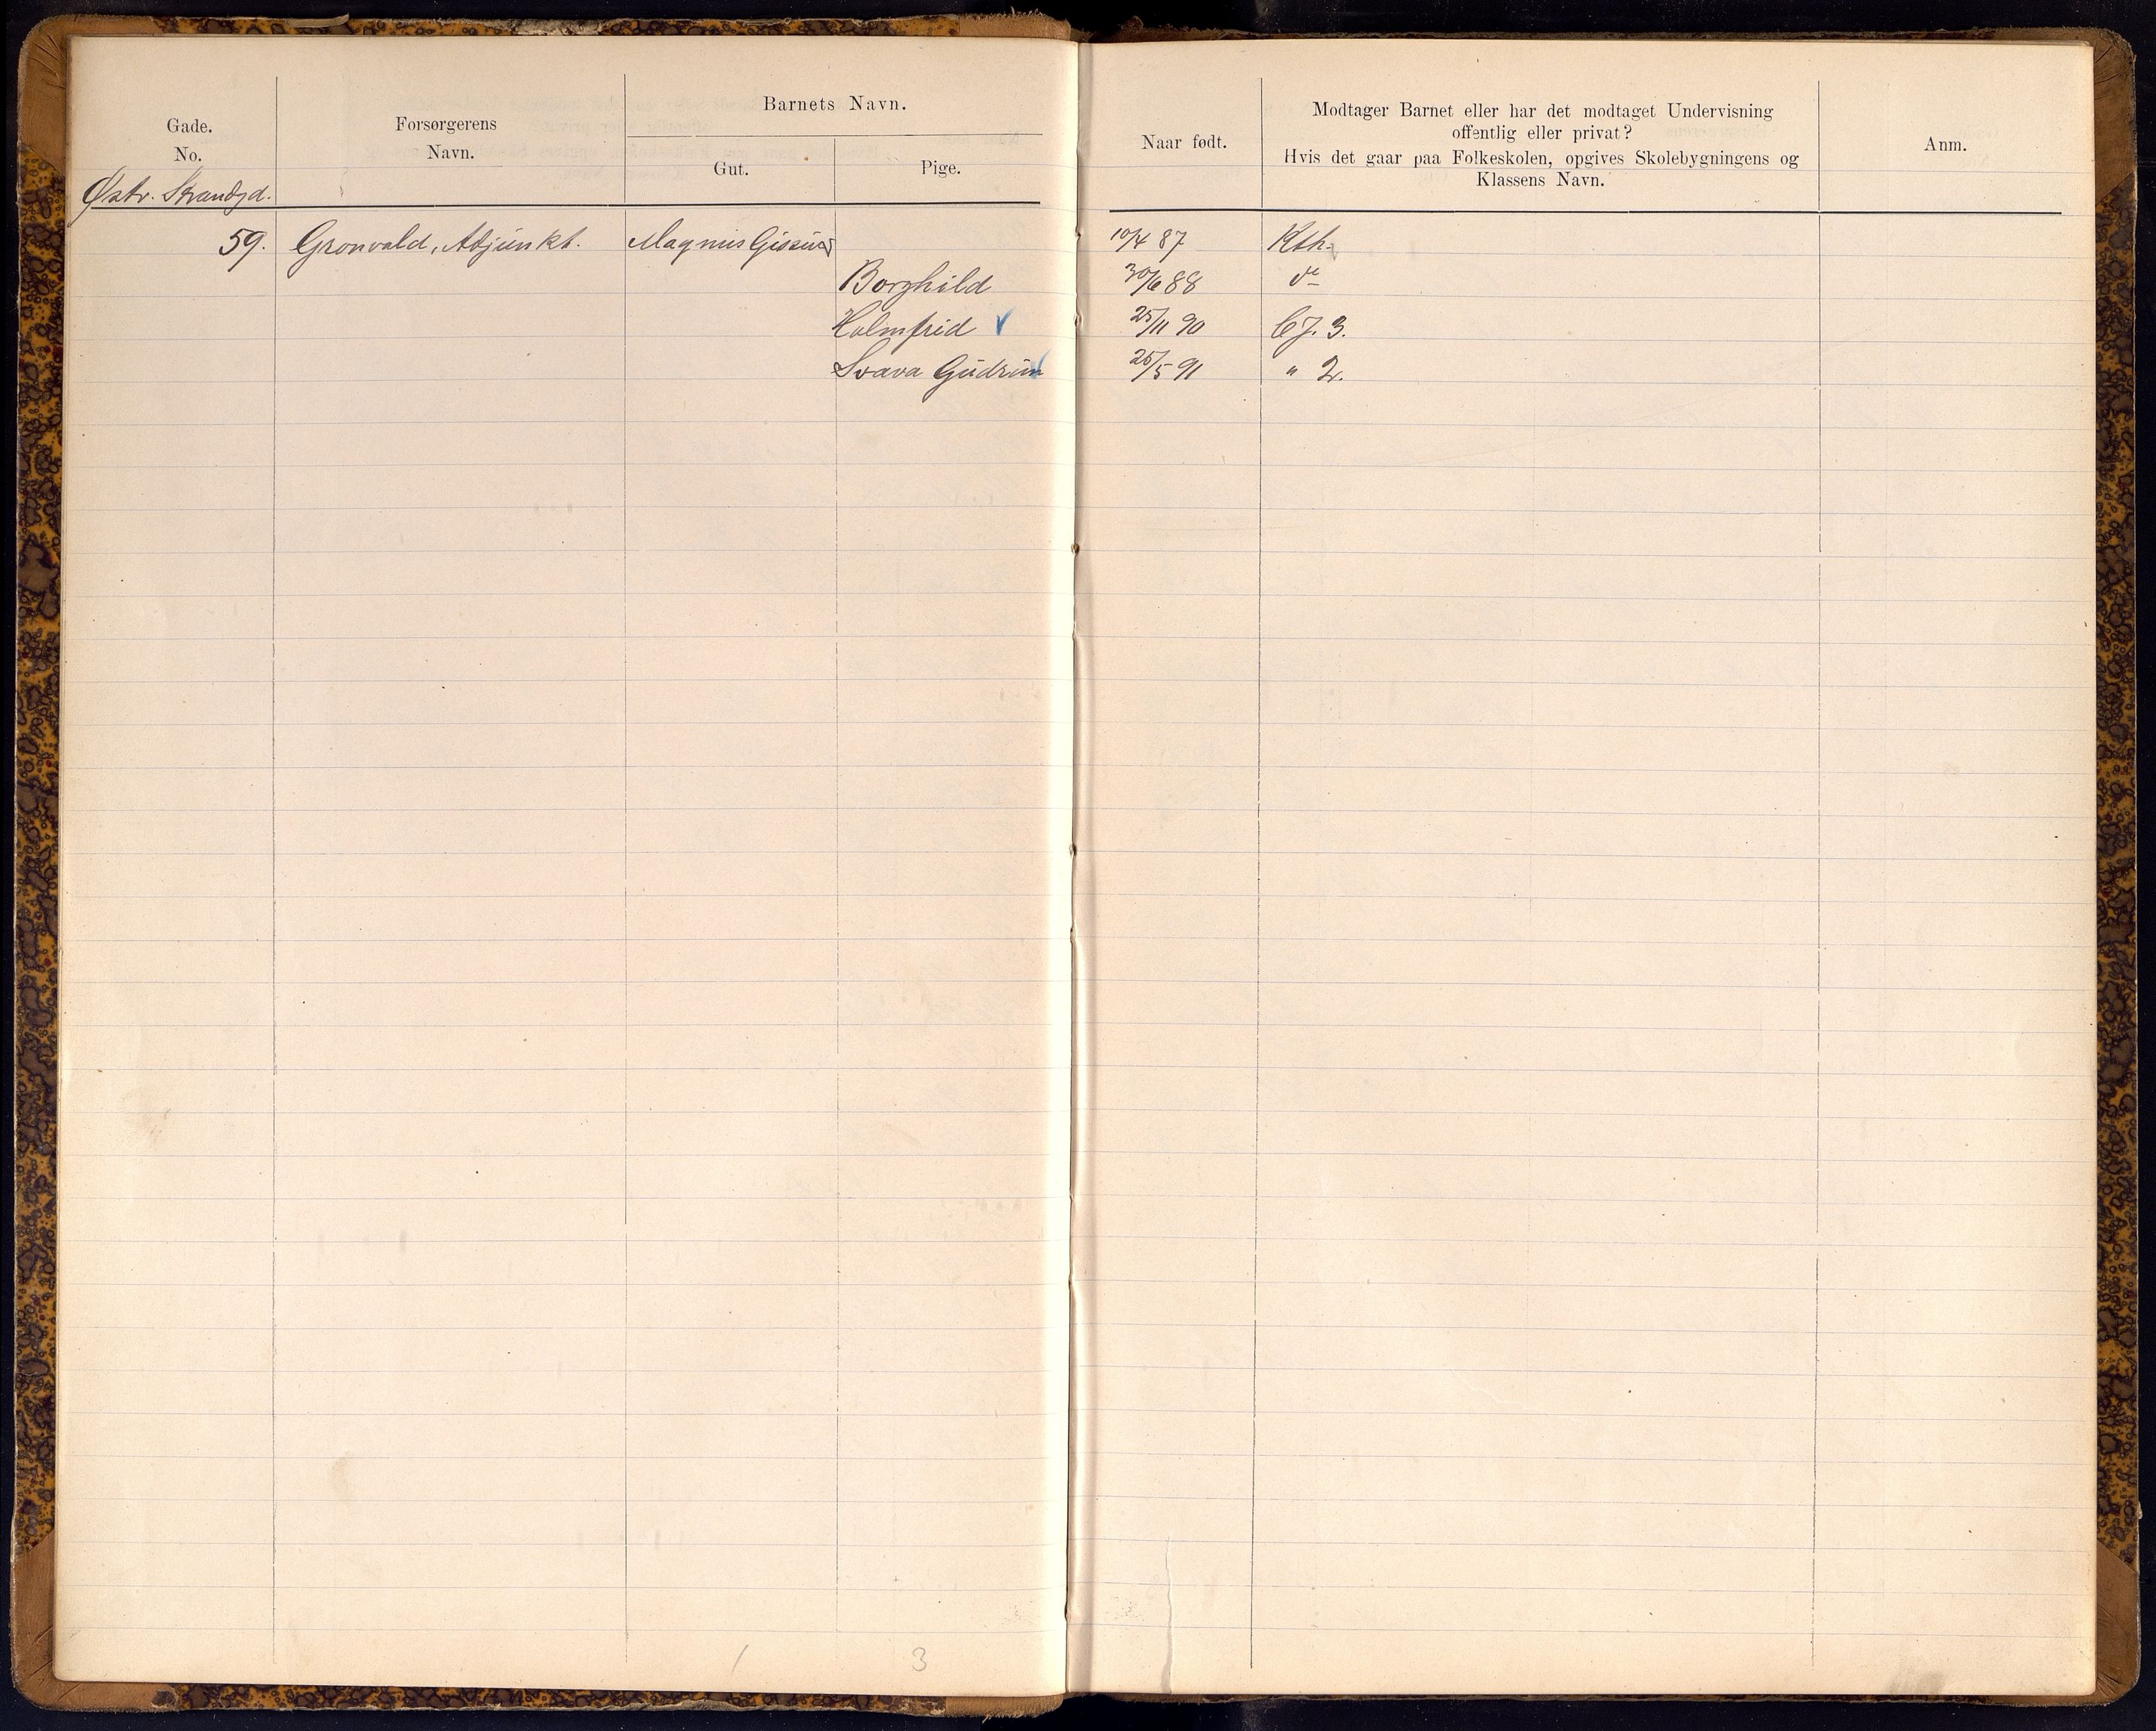 Gade.
No.
Forsørgerens
Navn.
Barnets Navn.
Gut.
Pige.
Naar født.
Modtager Barnet eller har det modtaget Undervisning
offentlig eller privat?
Hvis det gaar paa Folkeskolen, opgives Skolebygningens og
Klassens Navn.
Anm.
Østr. Strandgd.
59. Gronvald, Adjunkt. Magnus Gissur 10/4 87 Kth.
Borghild 30/6 88 do
Holmfrid 25/11 90 3.
Svava Gudrun 25/5 91 " 2.
1 3